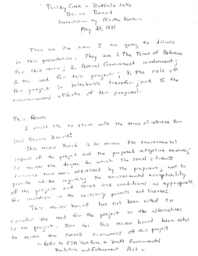 Parlby Creek - Buffalo Lake
Review Board
Presentation by Martha Kostuch
May 31, 1991
There are issues I am going to address
in this presentation. They are 1. the Terms of Reference
for this review, 2. Federal Government involvement,
3. the need for this project, 4. the role of
this project in interbasin transfer, and 5. the
environmental effects of this proposal.
I would like to start with the terms of reference for
this Review Board.
This Review Board is to review the environmental
impact of the project and the proposed mitigative measures,
to review the degree to which the local citizens
concerns have been addressed by the proponent, and to
provide advice regarding the environmental acceptability
of the project and terms and conditions as appropriate
for inclusion in the necessary permits and licences.
This review board has not been asked to
consider the need for the project or the alternatives
to the project. Nor has this review board been asked
to review the economics of this project.
- Refer to EIA Task Force & Draft Environmental
Protection and Enhancement Act -